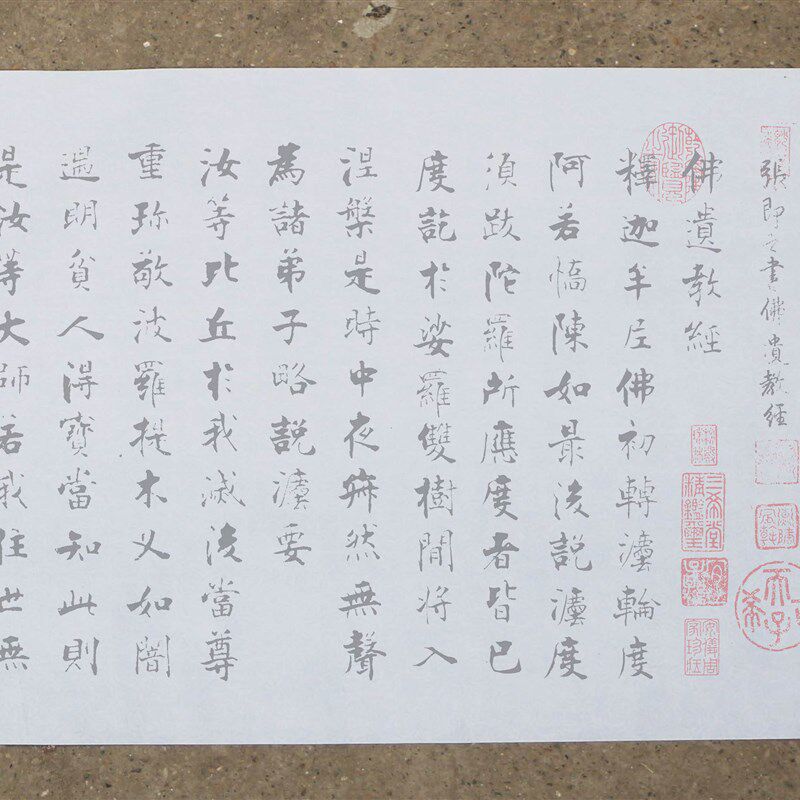 張即之書佛遺教經
佛遺教經
釋迦牟尼佛初轉灋輪度
阿若憍陳如最後說灋度
須跋陀羅所應度者皆已
度訖於娑羅雙樹間將入
涅槃是時中夜寂然無聲
為諸弟子略說灋要
汝等比丘於我滅後當尊
重珍敬波羅提木叉如闇
遇明貧人得寶當知此則
是汝等大師若我住世無
三希堂精鑒璽
宜子孫